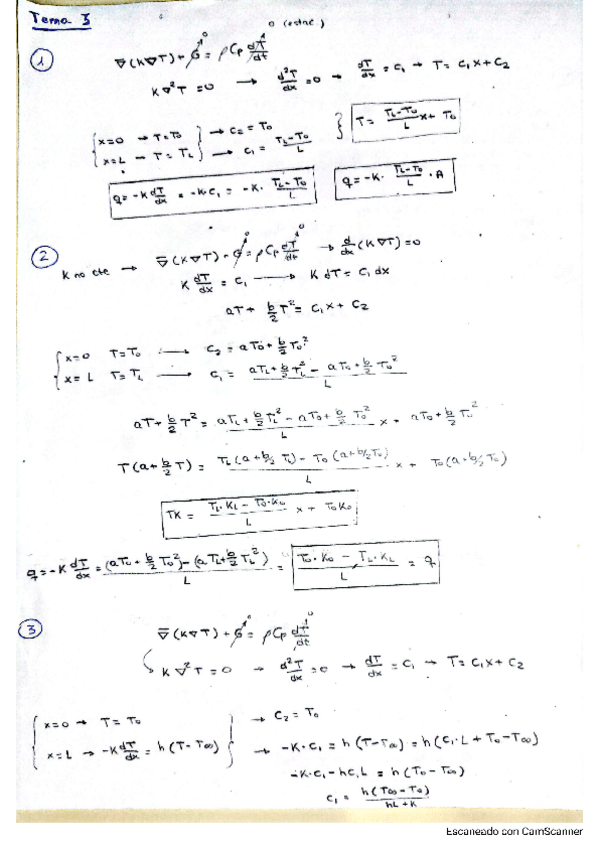 Tema 3
0 (estac)
1
∇(K∇T) + G = ρCp dT/dt
K∇²T = 0 → d²T/dx = 0 → dT/dx = C₁ → T = C₁x + C₂
x=0 → T=T₀ → C₂ = T₀ T = (T_L-T₀)/L x + T₀
x=L → T=T_L → C₁ = (T_L-T₀)/L
q = -K dT/dx = -K·C₁ = -K· (T_L-T₀)/L q = -K· (T_L-T₀)/L · A
2
K no cte → ∇(K∇T) + G = ρCp dT/dt → d/dx (K∇T) = 0
K dT/dx = C₁ → K dT = C₁ dx
aT + b/2 T² = C₁x + C₂
x=0 T=T₀ → C₂ = aT₀ + b/2 T₀²
x=L T=T_L → C₁ = (aT_L + b/2 T_L² - aT₀ + b/2 T₀²)/L
aT + b/2 T² = (aT_L + b/2 T_L² - aT₀ + b/2 T₀²)/L x + aT₀ + b/2 T₀²
T(a + b/2 T) = (T_L(a + b/2 T_L) - T₀(a + b/2 T₀))/L x + T₀(a + b/2 T₀)
TK = (T_L·K_L - T₀·K₀)/L x + T₀K₀
q = -K dT/dx = ((aT₀ + b/2 T₀²) - (aT_L + b/2 T_L²))/L = (T₀·K₀ - T_L·K_L)/L = q
3
∇(K∇T) + G = ρCp dT/dt
K∇²T = 0 → d²T/dx = 0 → dT/dx = C₁ → T = C₁x + C₂
x=0 → T=T₀ → C₂ = T₀
x=L → -K dT/dx = h(T-T∞) → -K·C₁ = h(T-T∞) = h(C₁·L + T₀-T∞)
-K·C₁ - hC₁L = h(T₀-T∞)
C₁ = h(T∞-T₀)/(hL+K)
Escaneado con CamScanner